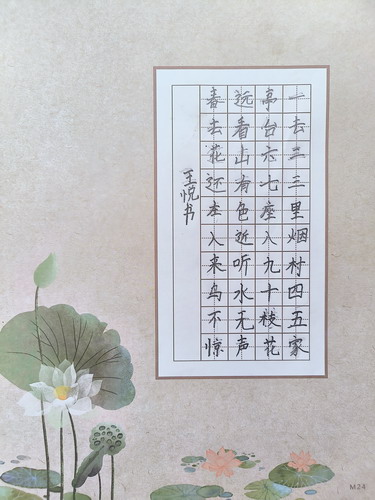 一去二三里烟村四五家
亭台六七座八九十枝花
远看山有色近听水无声
春去花还在人来鸟不惊
王悦书
M24